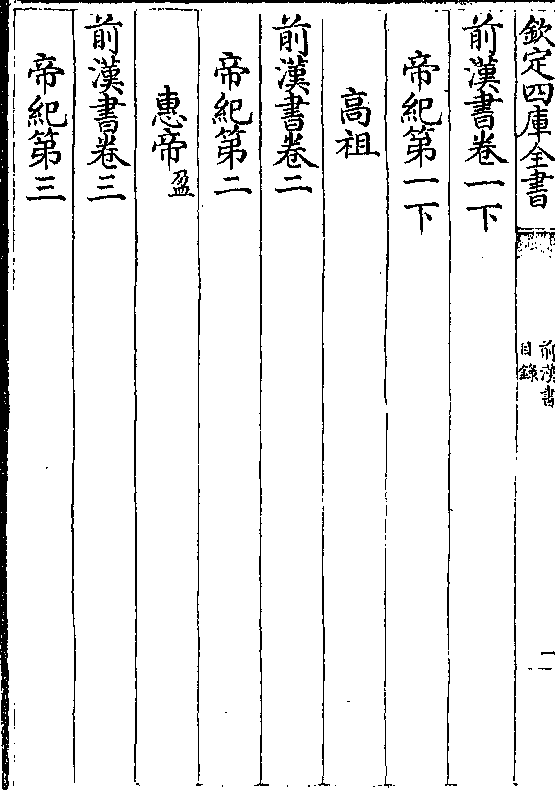 欽定四庫全書
前漢書
目錄
一
前漢書卷一下
帝紀第一下
高祖
前漢書卷二
帝紀第二
惠帝盈
前漢書卷三
帝紀第三